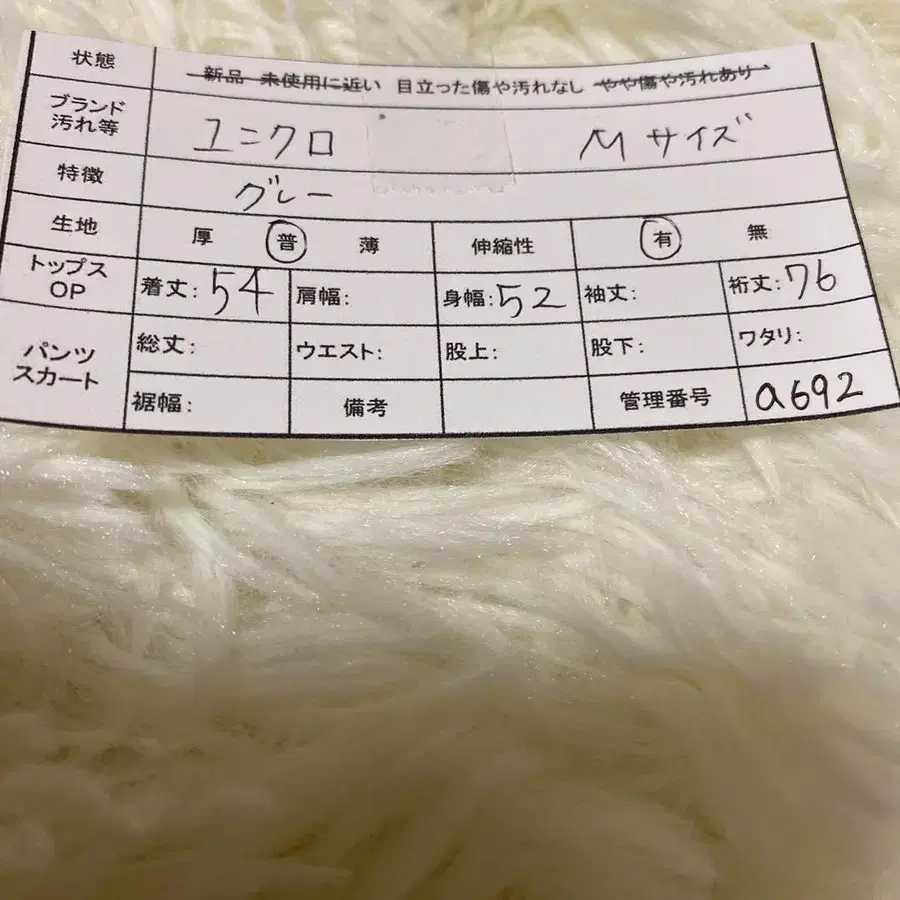 状態 新品 未使用に近い 目立った傷や汚れなし やや傷や汚れあり
ブランド
汚れ等 ユニクロ Mサイズ
特徴 グレー
生地 厚 普 薄 伸縮性 有 無
トップス
OP 着丈:54 肩幅: 身幅:52 袖丈: 裄丈:76
パンツ
スカート 総丈: ウエスト: 股上: 股下: ワタリ:
裾幅: 備考 管理番号 a692